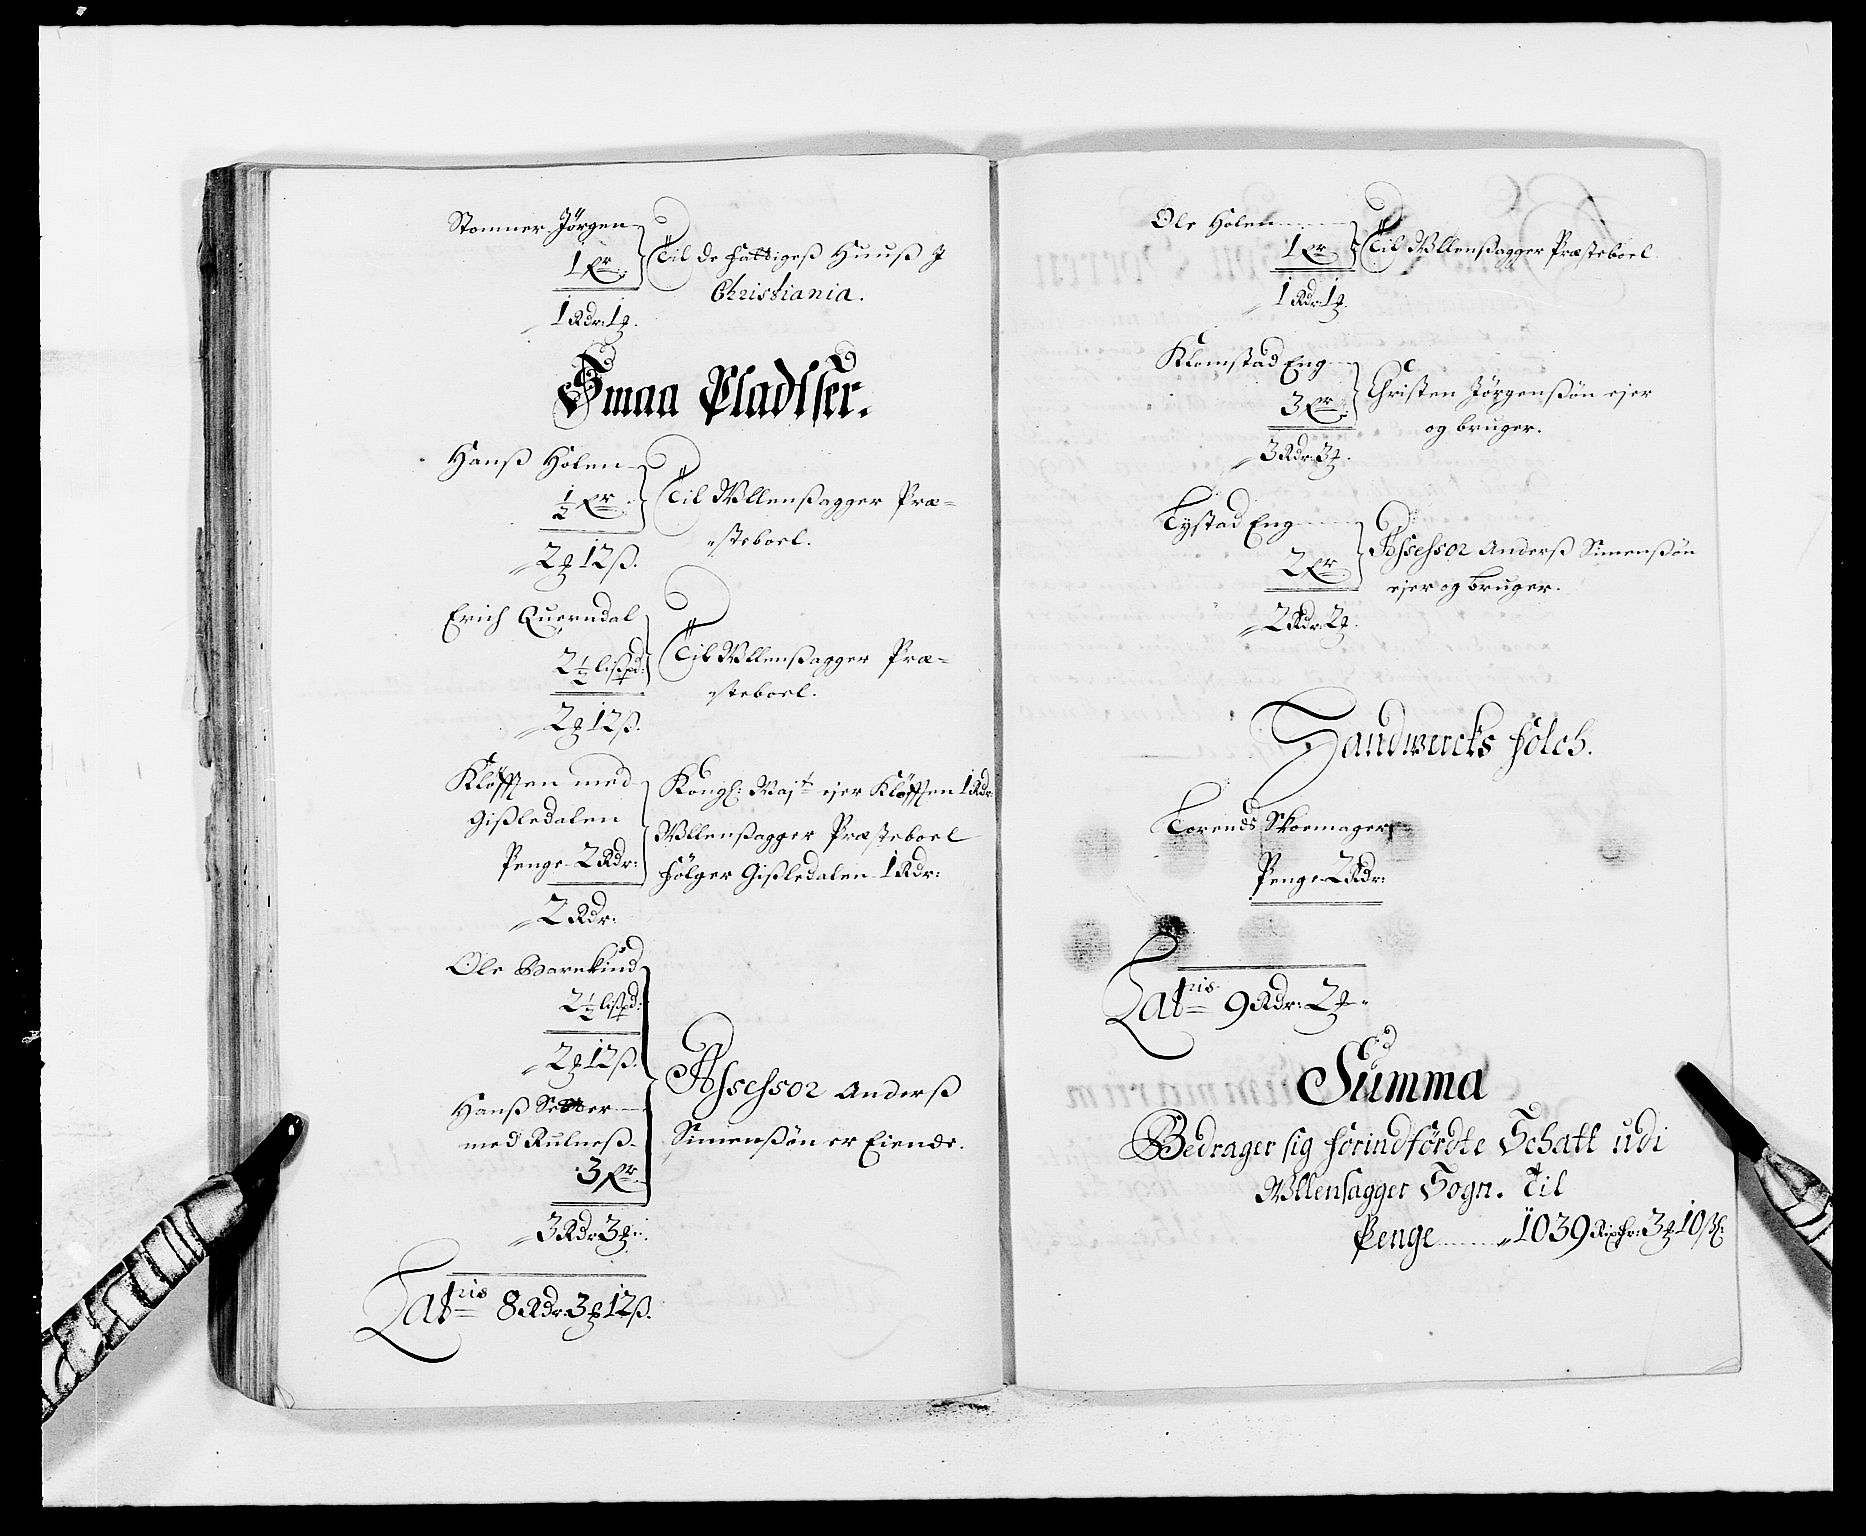 Stomner Jörgen
1 Er
Til de fattigeß Huuß J
Christiania.
1 Rdr: 1
Smaa Pladtser.
Hanß Holen
½ Er
Til Ullenßagger Præ-
steboel.
2 12 ß.
Erich Querndal
2½ lißpd:
Til Ullenßagger Præ-
steboel.
2 12 ß.
Klöfften med
Gißledalen
Penge 2 Rdr:
Kongl: Majt ejer Klöfften 1 Rdr:
Ullenßagger Præsteboel
fölger Gißledalen 1 Rdr:
2 Rdr:
Ole Barnkind
2½ lißpd:
2 12 ß.
Hanß Setter
med Rulneß
3 Er
Assessor Anderß
Simenßön er Eiende.
3 Rdr 3
Latris 8 Rdr 3 12 ß.
Ole Holen
1 Er
Til Ullenßagger Præsteboel
1 Rdr: 1
Klomstad Eng
3 Er
Christen Jörgenßön ejer
og bruger.
3 Rdr: 3
Tystad Eng
2 Er
Assessor Anderß Simenßön
ejer og bruger.
2 Rdr: 2
Handwercks folch.
Torends Skoemager
Penge 2 Rdr:
Latris 9 Rdr: 2
Summa
Bedrager sig forindfördte Schatt udi
Ullensagger Sogn. Til
Penge 1039 3 10 ß: